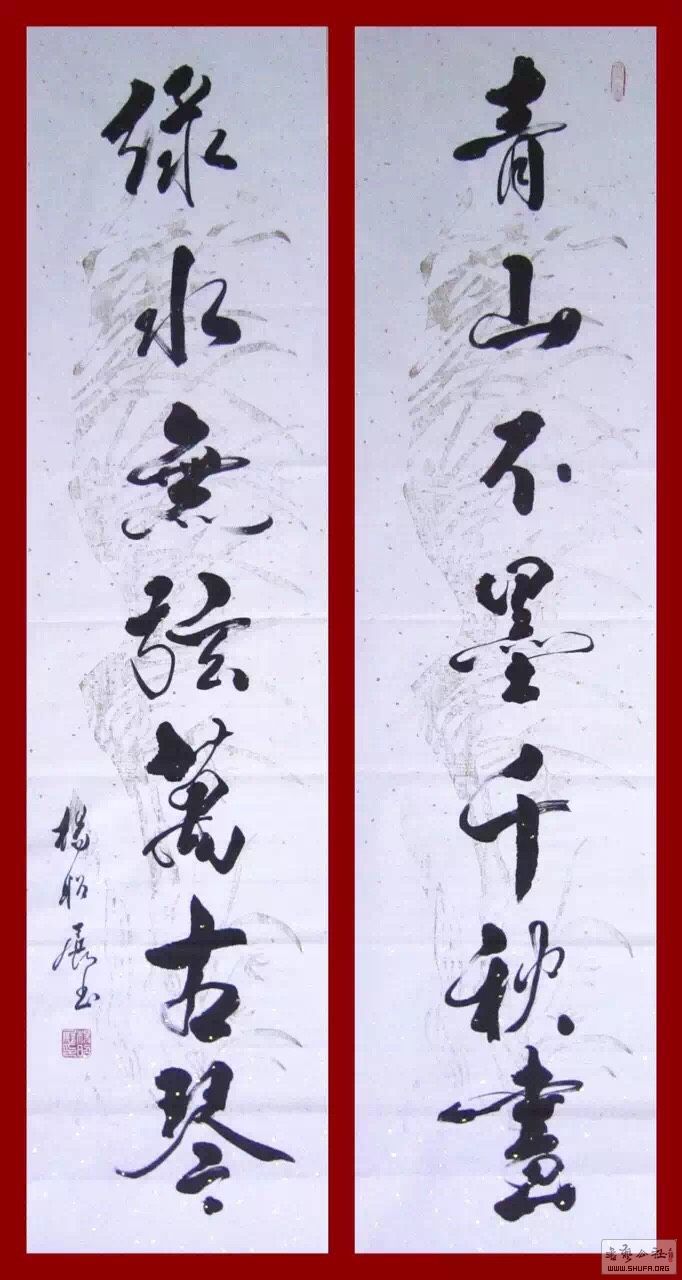 青山不墨千秋畫
綠水無弦萬古琴
楊昭展書
WWW.SHUFA.ORG